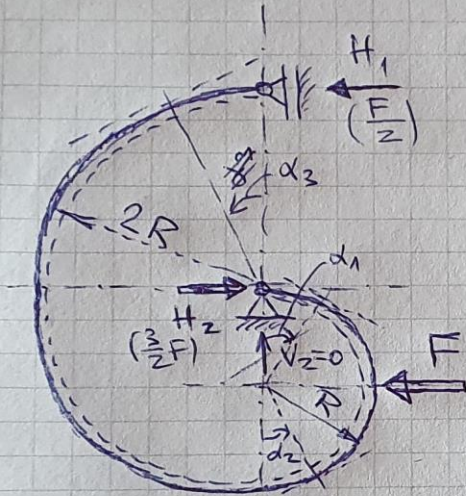 H₁
(F/2)
α₃
2R
α₁
H₂
(3/2F)
V₂=0
F
R
α₂